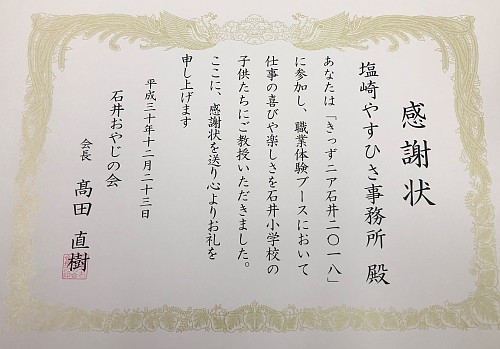 感謝状
塩崎やすひさ事務所 殿
あなたは「きっずニア石井二〇一八」
に参加し、職業体験ブースにおいて
仕事の喜びや楽しさを石井小学校の
子供たちにご教授いただきました。
ここに、感謝状を送り心よりお礼を
申し上げます
平成三十年十二月二十三日
石井おやじの会
会長 髙田 直樹